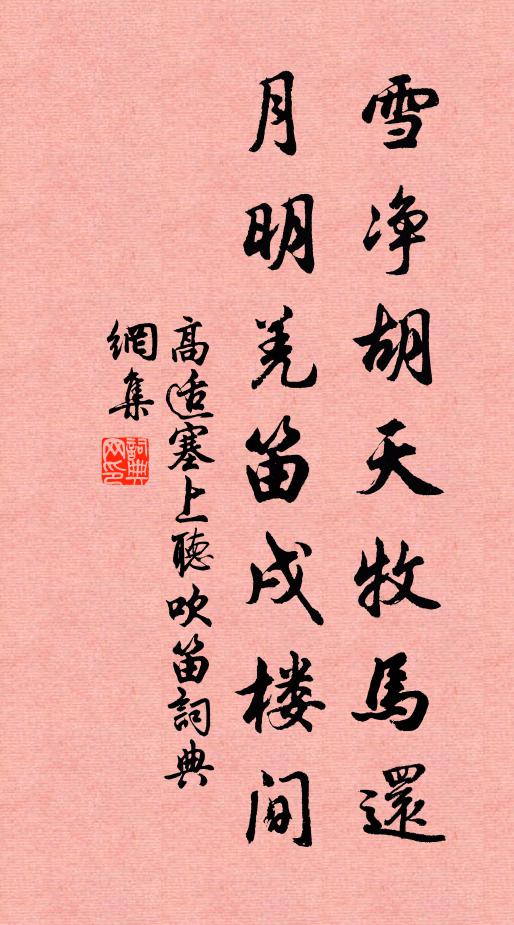 雪净胡天牧馬還
月明羌笛戍楼间
高适塞上聽吹笛詞典
網集
詞典网印